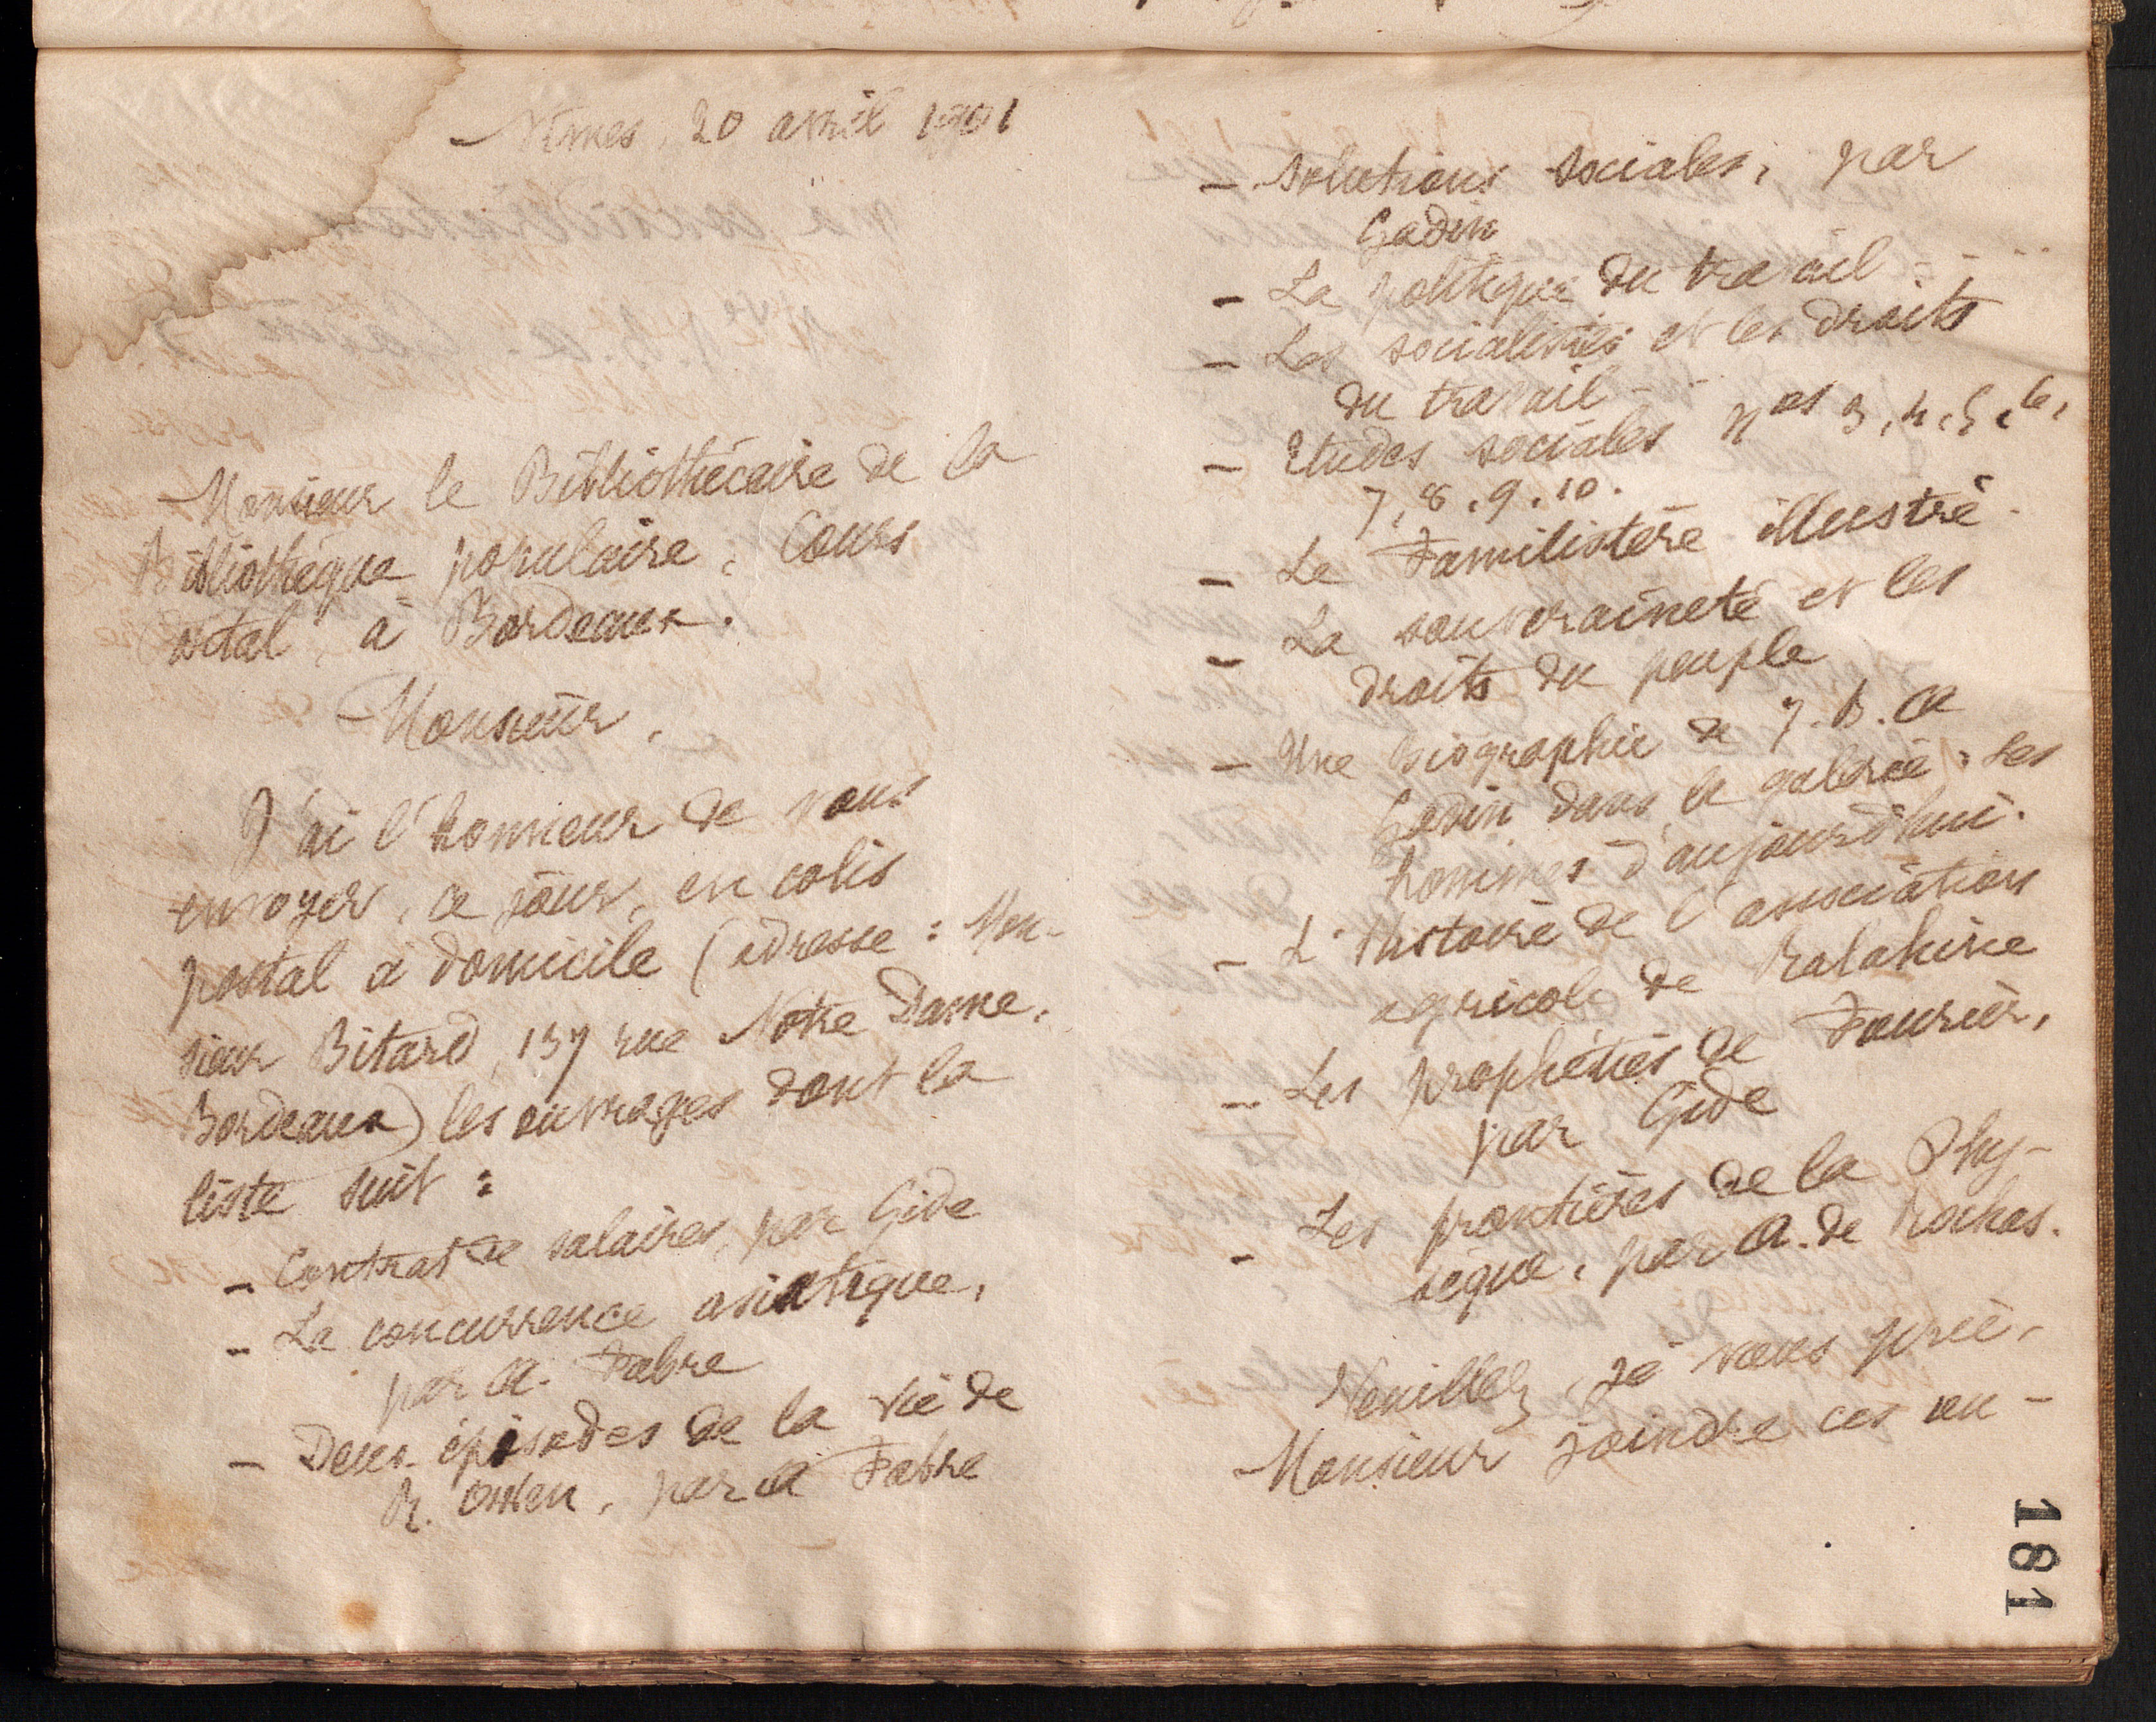 Nîmes, 20 avril 1901
Monsieur le Bibliothécaire de la
Bibliothèque populaire, Cours
à Bordeaux.
Monsieur,
J'ai l'honneur de vous
envoyer, ce jour, en colis
postal à domicile (adresse : Mon-
sieur Bitard, 137 rue Notre Dame,
Bordeaux) les ouvrages dont la
liste suit :
- Contrat de salaires, par Gide
- La concurrence asiatique,
par A. Fabre
- Deux épisodes de la vie de
R. Owen, par A Fabre
- Solutions sociales, par
Godin
- La politique du travail
- Les socialistes et les droits
du travail -
- Etudes sociales nos 3, 4, 5, 6,
7, 8, 9, 10.
- Le Familistère illustré.
- La souveraineté et les
droits du peuple
- Une biographie de J. B. A
Godin dans la galerie : Les
hommes d'aujourd'hui.
- L'histoire de l'association
agricole de Ralahine
- Les prophéties de Fourier,
par Gide
- Les frontières de la Phy-
sique, par A. de Rochas.
Veuillez, je vous prie,
Monsieur joindre ces ou-
181